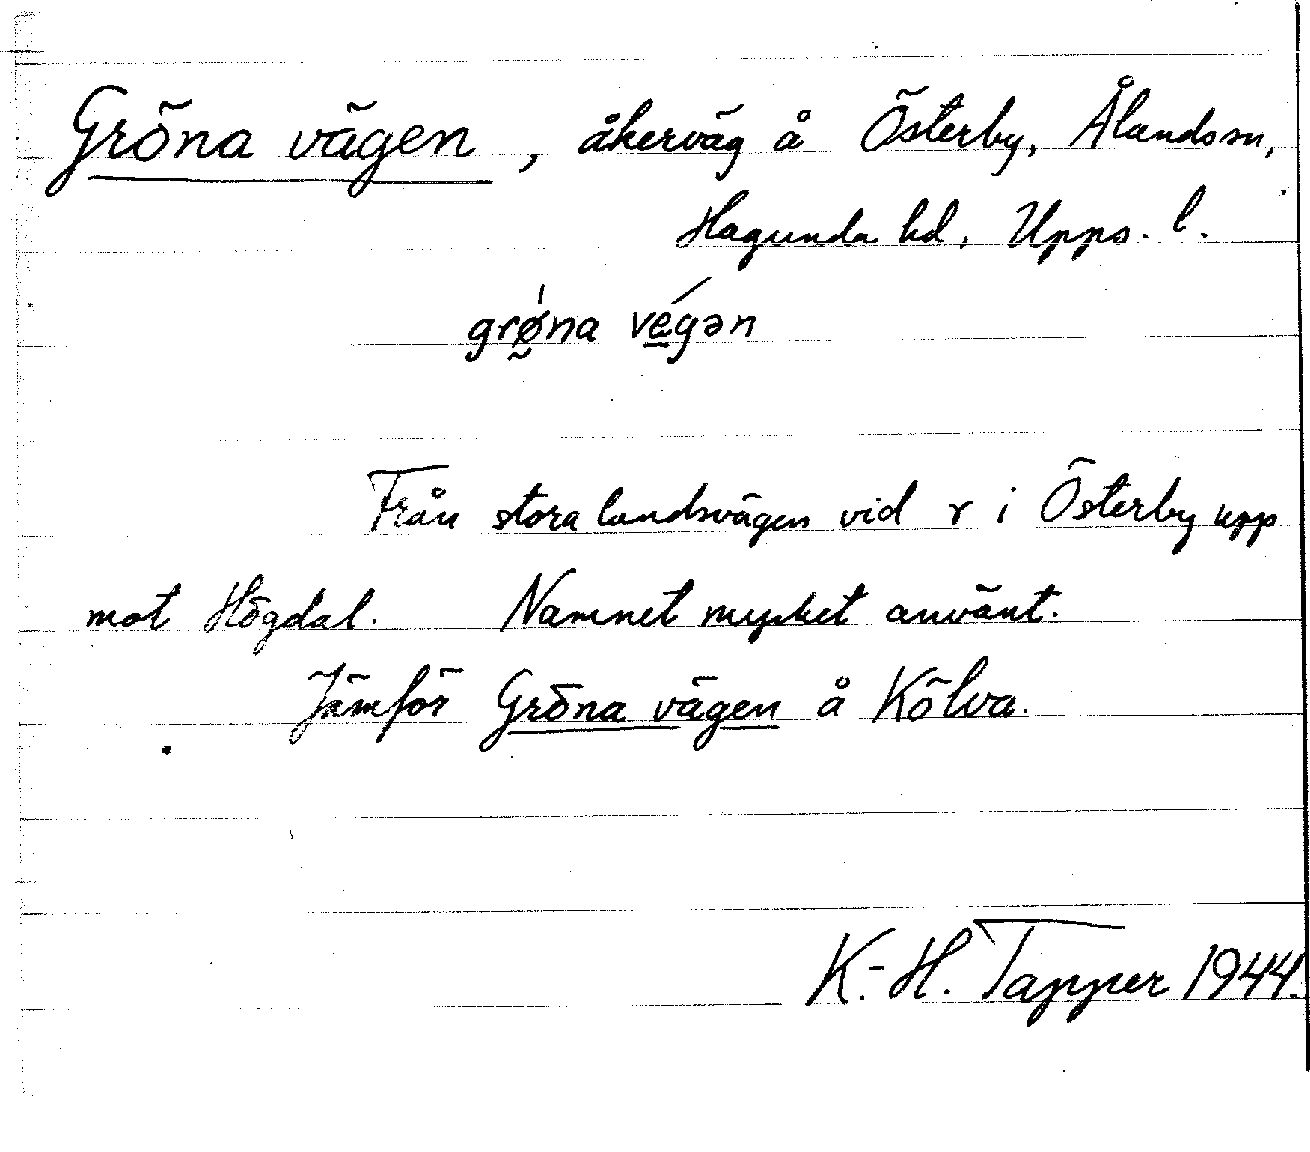 Gröna vägen, åkerväg å Österby, Ålands sn,
Hagunda hd, Upps. l.
grǿ̰na vé̱gən
Från stora landsvägen vid r i Österby upp
mot Högdal. Namnet mycket använt.
Jämför Gröna vägen å Kölva.
K.-H. Tapper 1944.